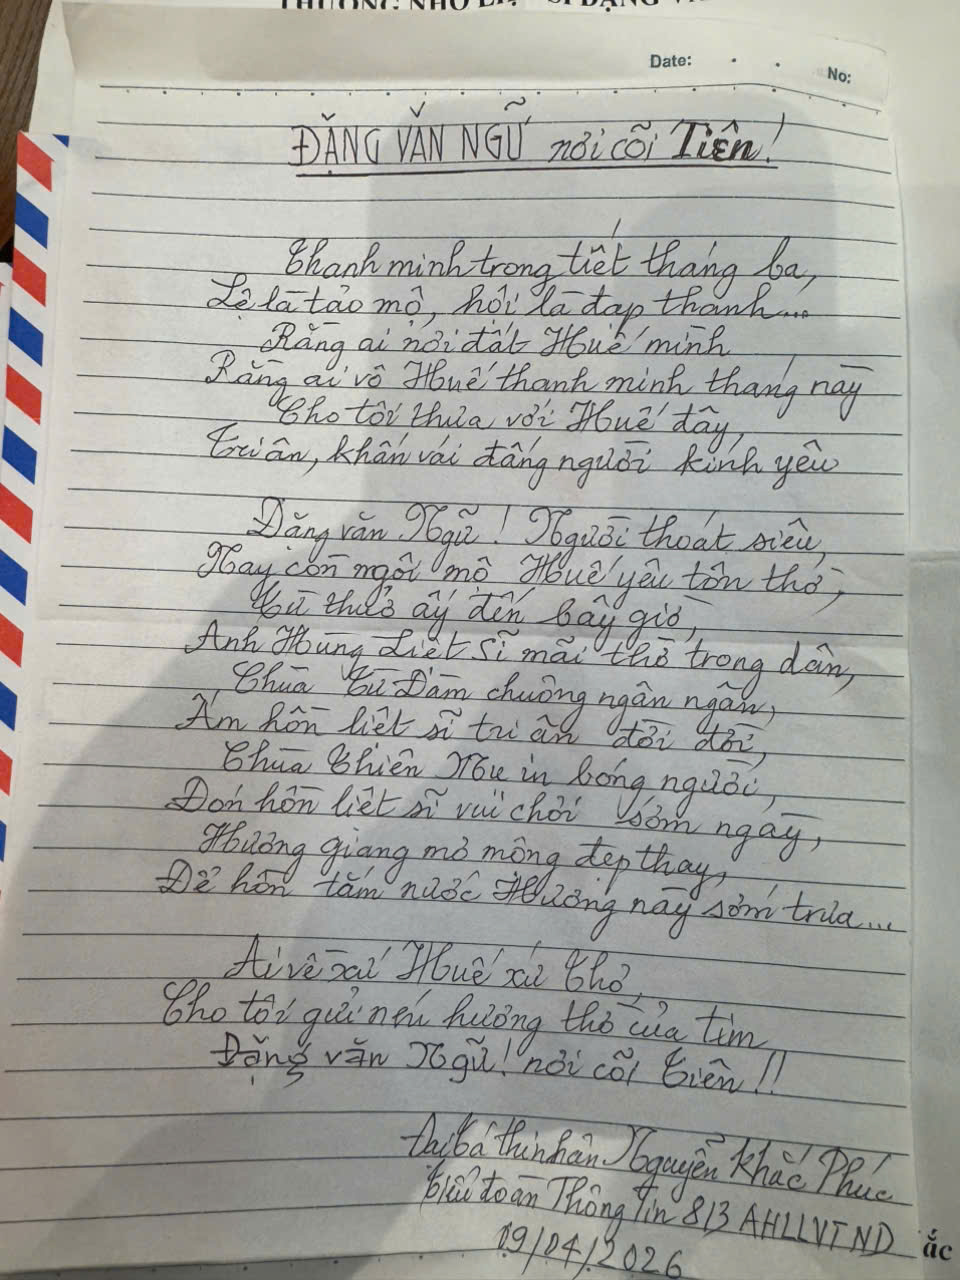 Date: . . No:
ĐẶNG VĂN NGỮ nơi cõi Tiên!
Thanh minh trong tiết tháng ba,
Lễ là tảo mộ, hội là đạp thanh...
Rằng ai nơi đất Huế mình
Rằng ai vô Huế thanh minh tháng này
Cho tôi thưa với Huế đây,
Tri ân, khấn vái đấng người kính yêu
Đặng văn Ngữ! Người thoát siêu,
Nay còn ngôi mộ Huế yêu tôn thờ,
Từ thuở ấy đến bây giờ,
Anh Hùng Liệt Sĩ mãi thờ trong dân,
Chùa Từ Đàm chuông ngân ngân,
Ấm hồn liệt sĩ tri ân đời đời,
Chùa Thiên Mụ in bóng người,
Đón hồn liệt sĩ vui chơi sớm ngày,
Hương giang mơ mộng đẹp thay,
Để hồn tắm nước Hương này sớm trưa...
Ai về xứ Huế xứ Thơ,
Cho tôi gửi nén hương thờ của tim
Đặng văn Ngữ! nơi cõi Tiên!!
Đại tá thi nhân Nguyễn Khắc Phúc
Tiểu đoàn Thông Tin 813 AHLLVTND
09/04/2026
ắc